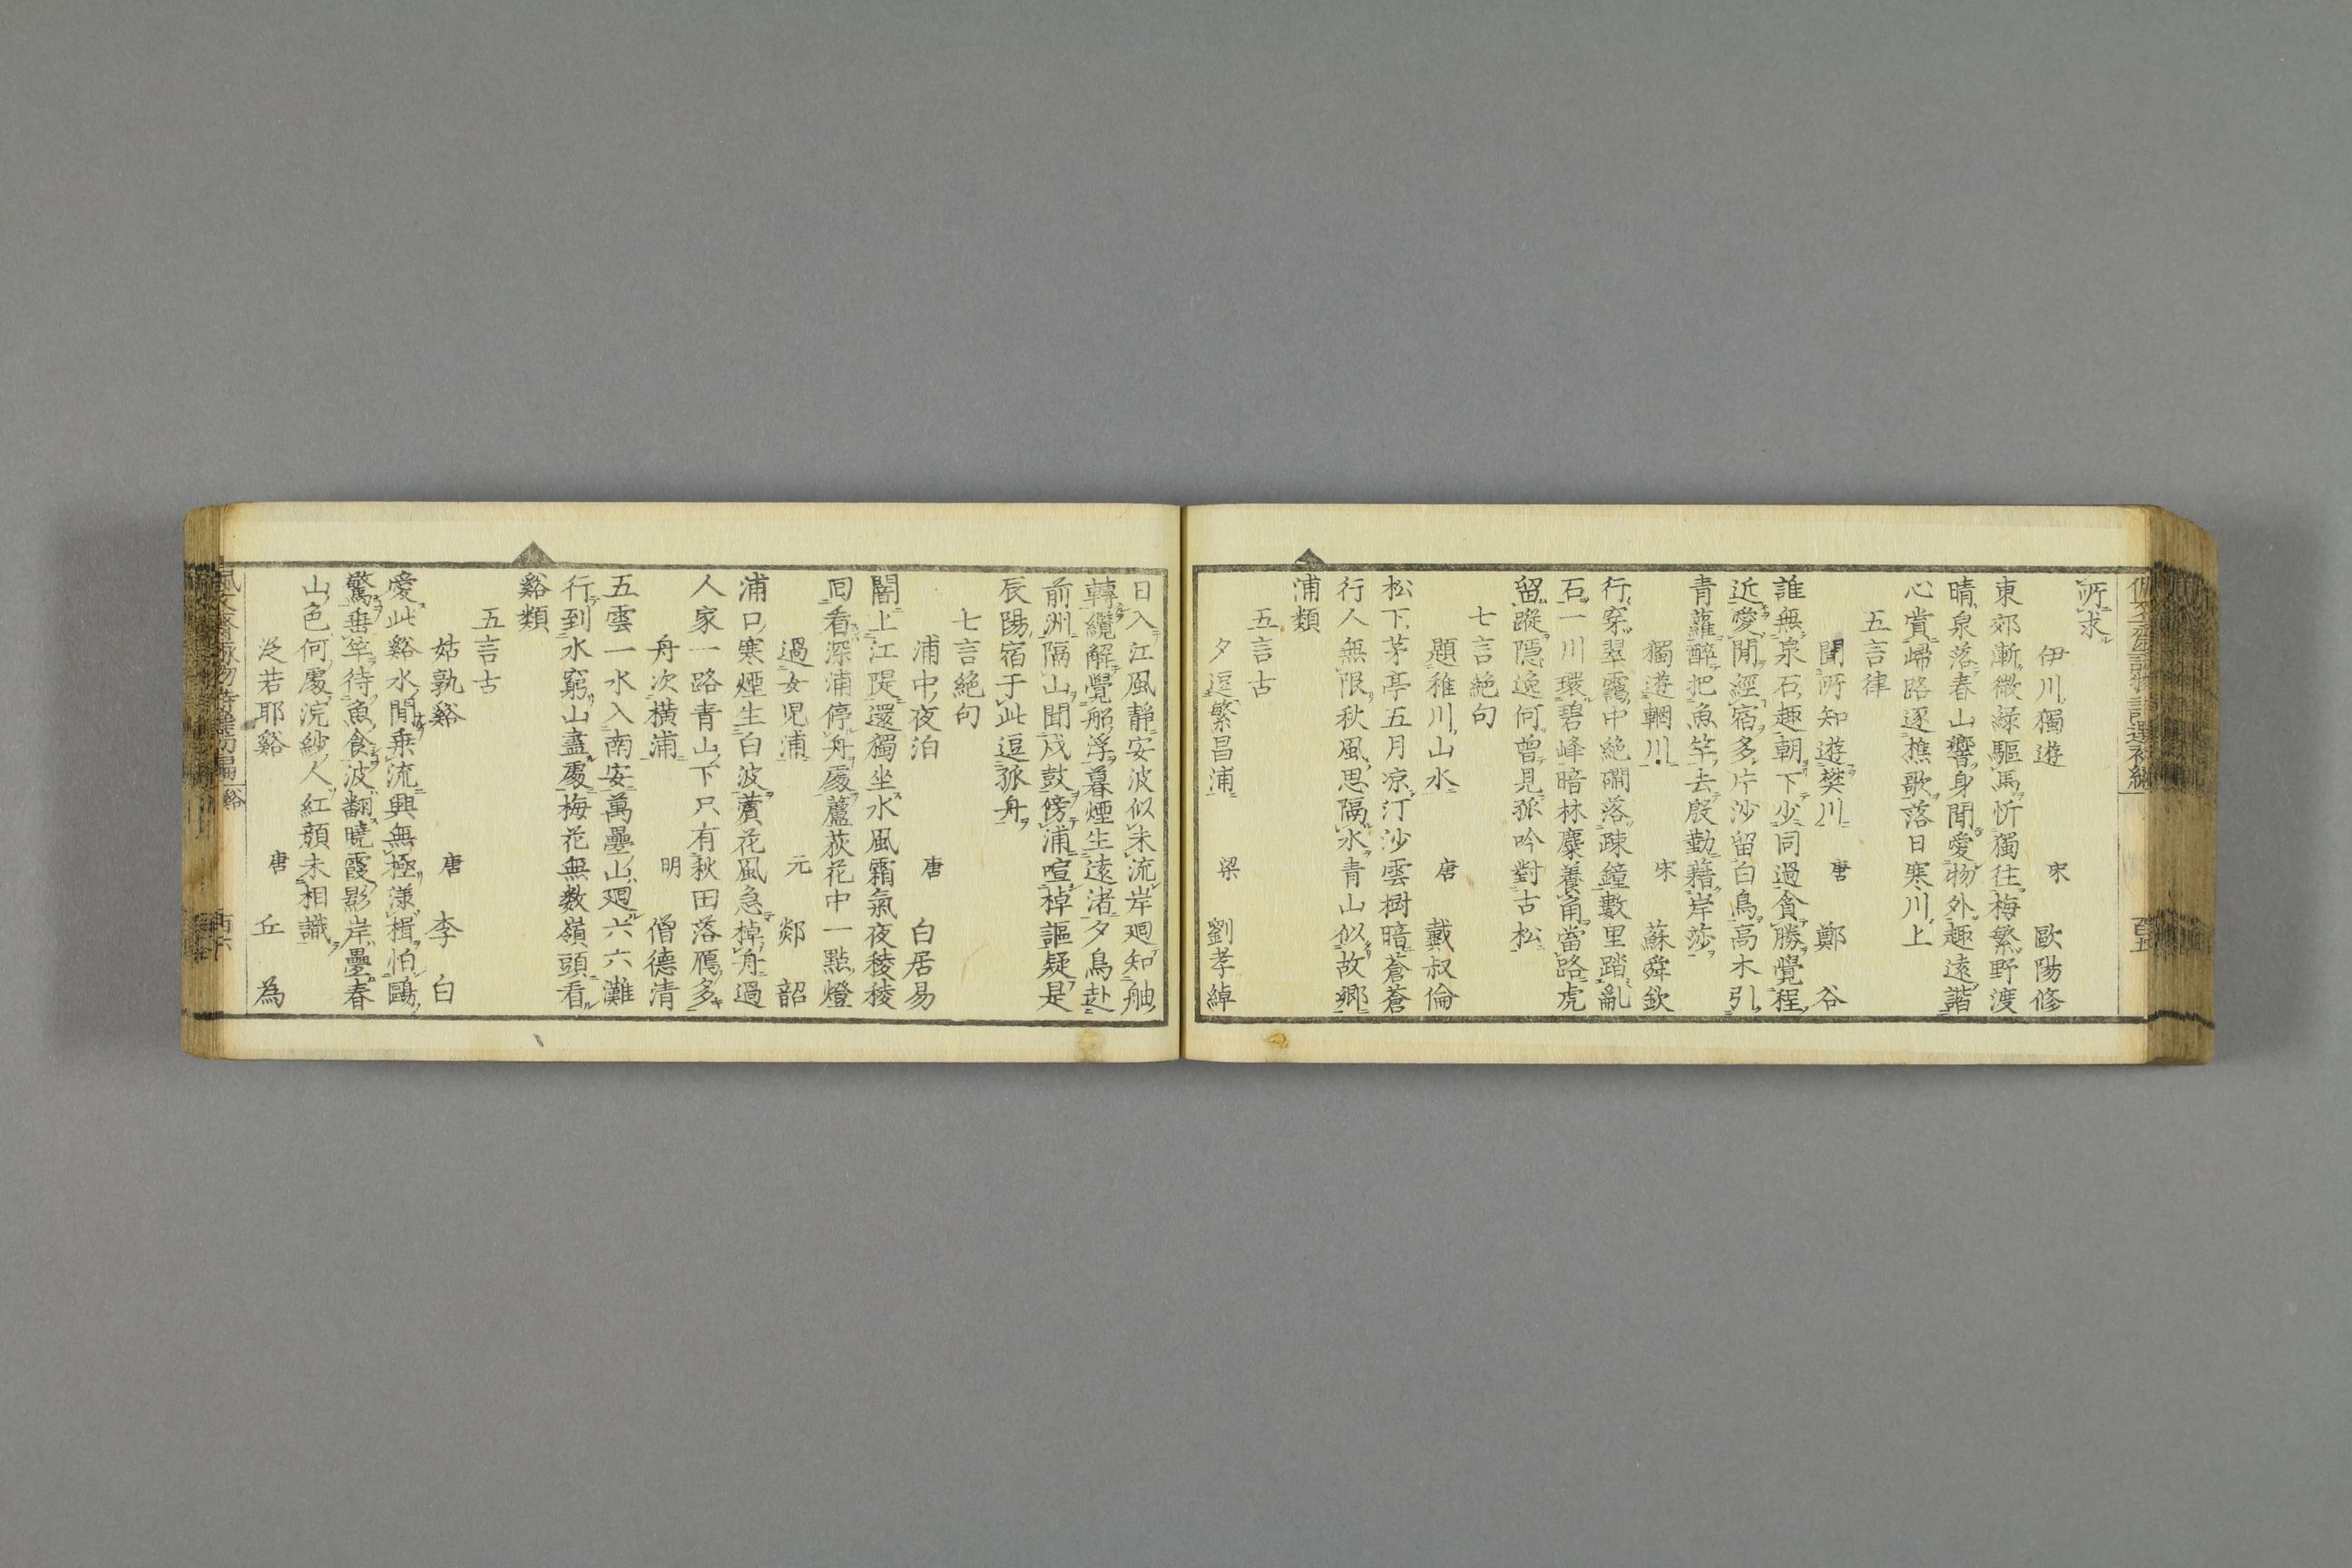 所求
伊川獨遊　宋　歐陽修
東郊漸微緑驅馬忻獨往梅繁野渡
晴泉落春山響身閒愛物外趣遠諧
心賞歸路逐樵歌落日寒川上
五言律
聞所知遊樊川　唐　鄭谷
誰無泉石趣朝下少同過貪勝覺程
近愛閒經宿多片沙留白鳥高木引
青蘿醉把魚竿去殷勤藉岸莎
獨遊輞川　宋　蘇舜欽
行穿翠靄中絶磵落疎鐘數里踏亂
石一川環碧峰暗林麋養角當路虎
留蹤隱逸何曾見孤吟對古松
七言絶句
題稚川山水　唐　戴叔倫
松下茅亭五月凉汀沙雲樹暗蒼蒼
行人無限秋風思隔水青山似故鄉
浦類
五言古
夕逗繁昌浦　梁　劉孝綽
日入江風静安波似未流岸廻知舳
轉纜解覺船浮暮煙生遠渚夕鳥赴
前洲隔山聞戍鼓傍浦喧棹謳疑是
辰陽宿于此逗孤舟
七言絶句
浦中夜泊　唐　白居易
闇上江隄還獨坐水風霜氣夜稜稜
回看深浦停舟處蘆荻花中一點燈
過女児浦　元　郯韶
浦口寒煙生白波薲花風急棹舟過
人家一路青山下只有秋田落鴈多
舟次横浦　明　僧德清
五雲一水入南安萬疊山廻六六灘
行到水窮山盡處梅花無数嶺頭看
谿類
五言古
姑孰谿　唐　李白
愛此谿水閒乗流興無極漾楫怕鷗
驚垂竿待魚食波翻曉霞影岸疊春
山色何處浣紗人紅顔未相識
泛若耶谿　唐　丘為
谿